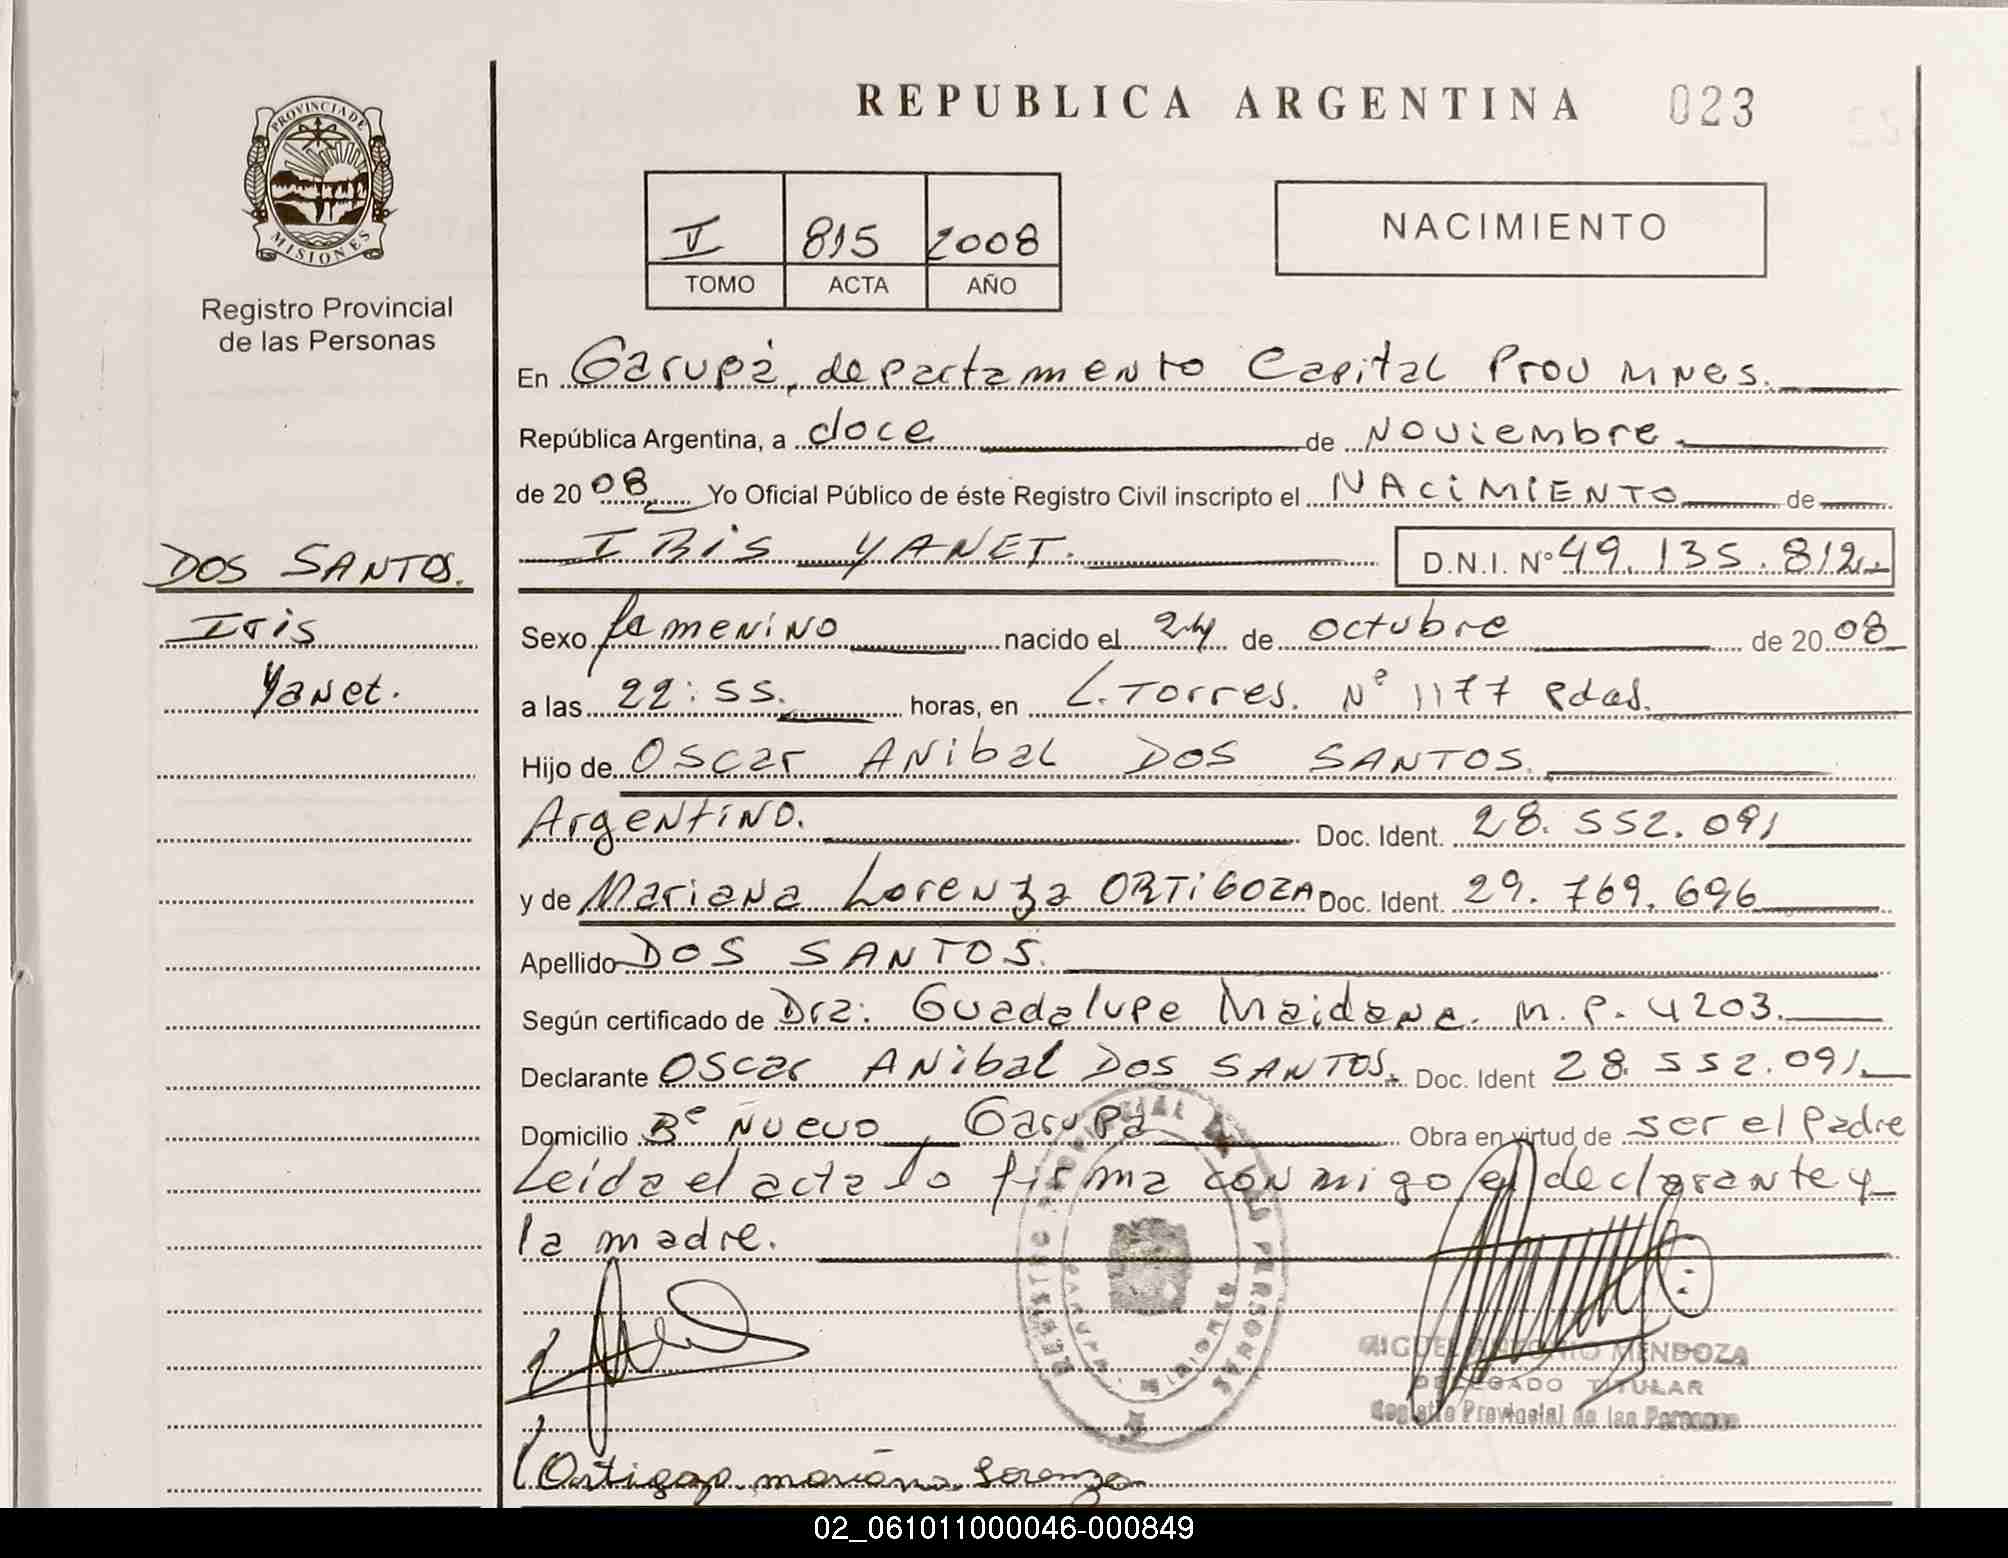 REPUBLICA ARGENTINA 023
PROVINCIA DE
MISIONES
Registro Provincial
de las Personas
I 815 2008
TOMO ACTA AÑO
NACIMIENTO
En Garupá, departamento Capital Prov Mnes.
República Argentina, a doce de Noviembre
de 2008 Yo Oficial Público de éste Registro Civil inscripto el NACIMIENTO de
IRIS YANET. D.N.I. Nº 49.135.812
DOS SANTOS.
Iris
Yanet.
Sexo femenino nacido el 24 de octubre de 2008
a las 22:55. horas, en L. Torres. Nº 1177 Pdas.
Hijo de Oscar Anibal DOS SANTOS.
Argentino. Doc. Ident. 28.552.091
y de Mariana Lorenza ORTIGOZA Doc. Ident. 29.769.696
Apellido DOS SANTOS.
Según certificado de Dra: Guadalupe Maidana. M.P. 4203.
Declarante Oscar Anibal DOS SANTOS. Doc. Ident 28.552.091.
Domicilio Bº Nuevo, Garupá Obra en virtud de ser el Padre
Leída el acta lo firma conmigo el declarante y
la madre.
REGISTRO PROVINCIAL DE LAS PERSONAS
MIGUEL ANTONIO MENDOZA
DELEGADO TITULAR
Registro Provincial de las Personas
Ortigoza mariana Lorenza
02_061011000046-000849